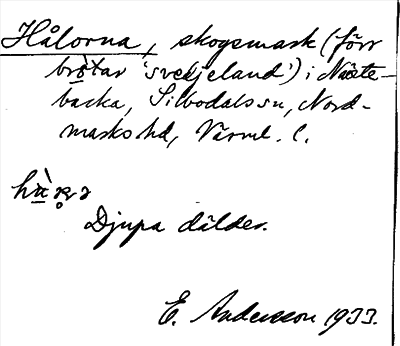 Hålorna, skogsmark (förr
brötar 'svedjeland') i Näste-
backa, Silbodals sn, Nord-
marks hd, Värml. l.
Djupa dälder.
E. Andersson 1933.